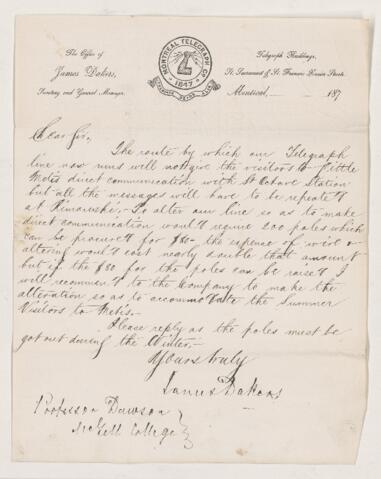 The Office of
James Dakers,
Secretary and General Manager.
MONTREAL TELEGRAPH CO.
1847
Telegraph Buildings,
St. Sacrament & St. Francois Xavier Streets.
Montreal, 187
Dear Sir,
The route by which our Telegraph
line now runs will not give the visitors to Little
Metis direct communication with St Octave Station
but all the messages will have to be repeated
at Rimouski. To alter our line so as to make
direct communication would require 200 poles which
can be procured for $80 - the expense of wire &
altering would cost nearly double that amount
but if the $80 for the poles can be raised I
will recommend to the Company to make the
alteration so as to accommodate the Summer
Visitors to Metis.
Please reply as the poles must be
got out during the Winter. -
Yours truly
James Dakers
Professor Dawson
McGill College